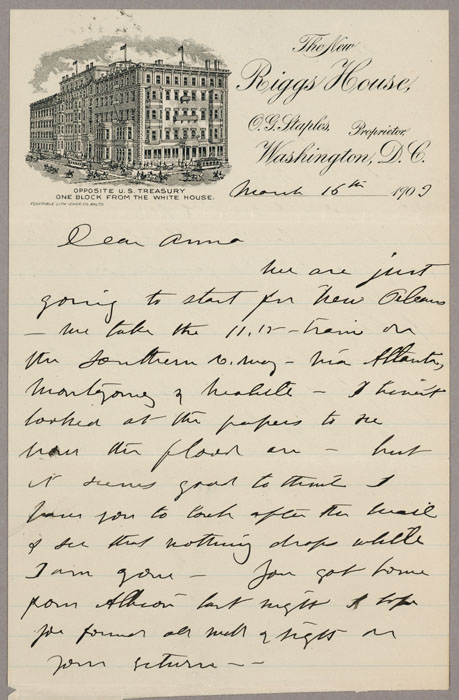 The New
Riggs House,
O. G. Staples, Proprietor.
Washington, D. C.
OPPOSITE U. S. TREASURY
ONE BLOCK FROM THE WHITE HOUSE.
March 16th 1903
Dear Anna
We are just
going to start for New Orleans
– we take the 11.15 – train on
the Southern R. way – via Atlanta,
Montgomery & Mobile – I haven't
looked at the papers to see
how the floods are – but
it seems good to think I
have you to look after the mail
& see that nothing drops while
I am gone – You got home
from Albion last night I hope
you found all well & right on
your return – –